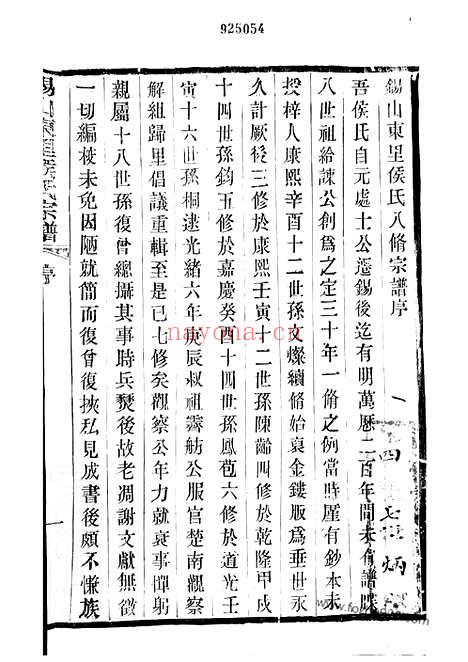 925054
錫山東里侯氏八脩宗譜序
吾侯氏自元處士公遷錫後迄有明萬厤二百年間未有譜牒
八世祖給諫公創爲之定三十年一脩之例當時厪有鈔本未
授梓人康熙辛酉十二世孫文燦續脩始裒金鏤版爲垂世永
久計厥後三修於康熙壬寅十二世孫陳齡四修於乾隆甲戌
十四世孫鈞五修於嘉慶癸酉十四世孫鳳苞六修於道光壬
寅十六世孫桐逮光緒六年庚辰叔祖霽舫公服官楚南觀察
解組歸里倡議重輯至是已七修矣觀察公年力就衰事憚躬
親屬十八世孫復曾總攝其事時兵燹後故老凋謝文獻無徵
一切編梭未免因陋就簡而復曾復挾私見成書後頗不慊族
錫山東里侯氏宗譜
序
一
nayona.cn